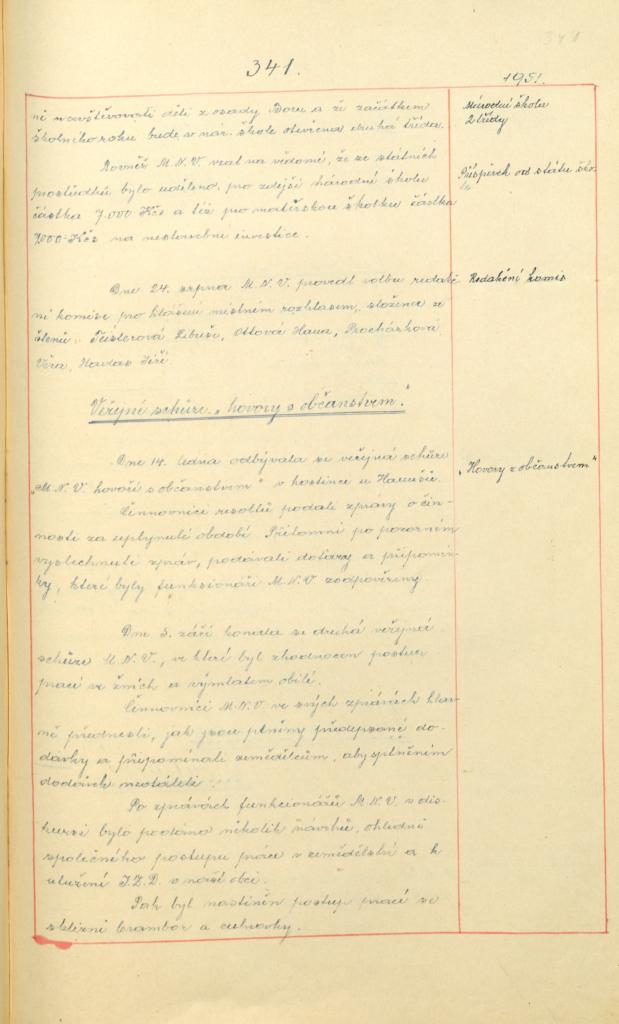 341.
1951.
ni navštěvovati děti z osady Boru a že začátkem
školního roku bude v nár. škole otevřena druhá třída.
Národní škola
2 třídy
Rovněž M.N.V. vzal na vědomí, že ze státních
prostředků bylo uděleno pro zdejší národní školu
částka 7.000 Kčs a též pro mateřskou školku částka
7000 Kčs na nestavební investice.
Příspěvek od státu ško-
le
Dne 24. srpna M.N.V. provedl volbu redakč-
ní komise pro hlášení místním rozhlasem, složenou ze
členů: Libuše, Ottová Hana, Procházková
Věra, Havlas Jiří.
Redakční komis
Veřejné schůze „hovory s občanstvem“.
Dne 14. ledna odbývala se veřejná schůze
„M.N.V. hovoří s občanstvem“ v hostinci u Hanušů.
„Hovory z občanstvem“
Činovníci resortů podali zprávy o čin-
nosti za uplynulé období. Přítomní po pozorném
vyslechnutí zpráv, podávali dotazy a připomín-
ky, které byly funkcionáři M.N.V. zodpověděny.
Dne 5. září konala se druhá veřejná
schůze M.N.V., ve které byl zhodnocen postup
prací ve žních a výmlatem obilí.
Činovníci M.N.V. ve svých zprávách hlav-
ně přednesli, jak jsou plněny předepsané do-
dávky a připomínali zemědělcům, aby splněním
dodávek neotáleli.
Po zprávách funkcionářů M.N.V. v dis-
kursi bylo podáno několik návrhů, ohledně
společného postupu práce v zemědělství a k
utužení J.Z.D. v naší obci.
Pak byl nastíněn postup prací se
sklizní brambor a cukrovky.